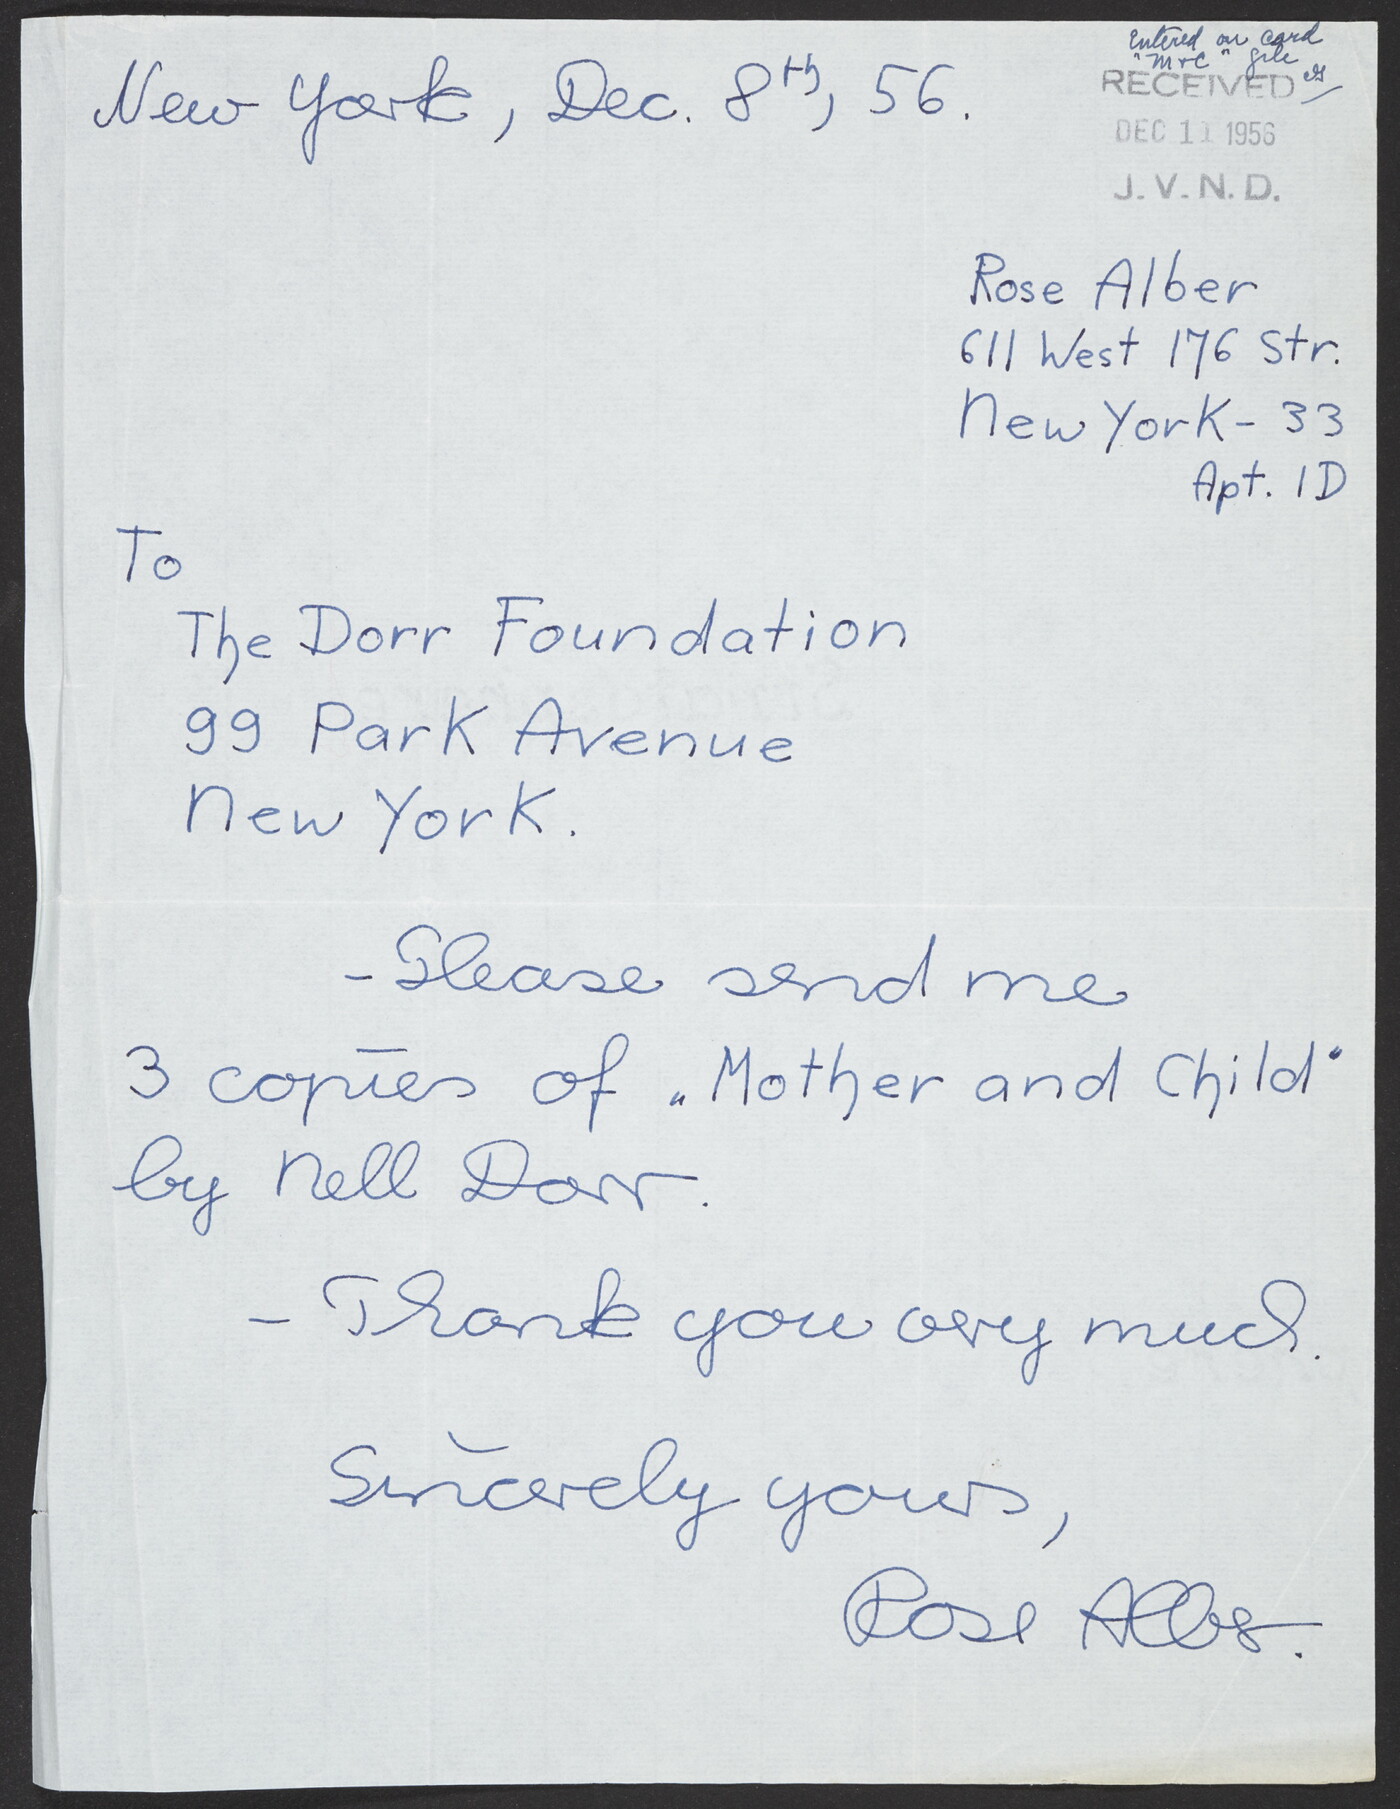 New York, Dec. 8th, 56.
Entered on card
"M+C" file
RECEIVED
DEC 11 1956
J. V. N. D.
Rose Alber
611 West 176 Str.
New York - 33
Apt. 1D
To
The Dorr Foundation
99 Park Avenue
New York.
- Please send me
3 copies of „Mother and Child“
by Nell Dorr.
- Thank you very much.
Sincerely yours,
Rose Alber.